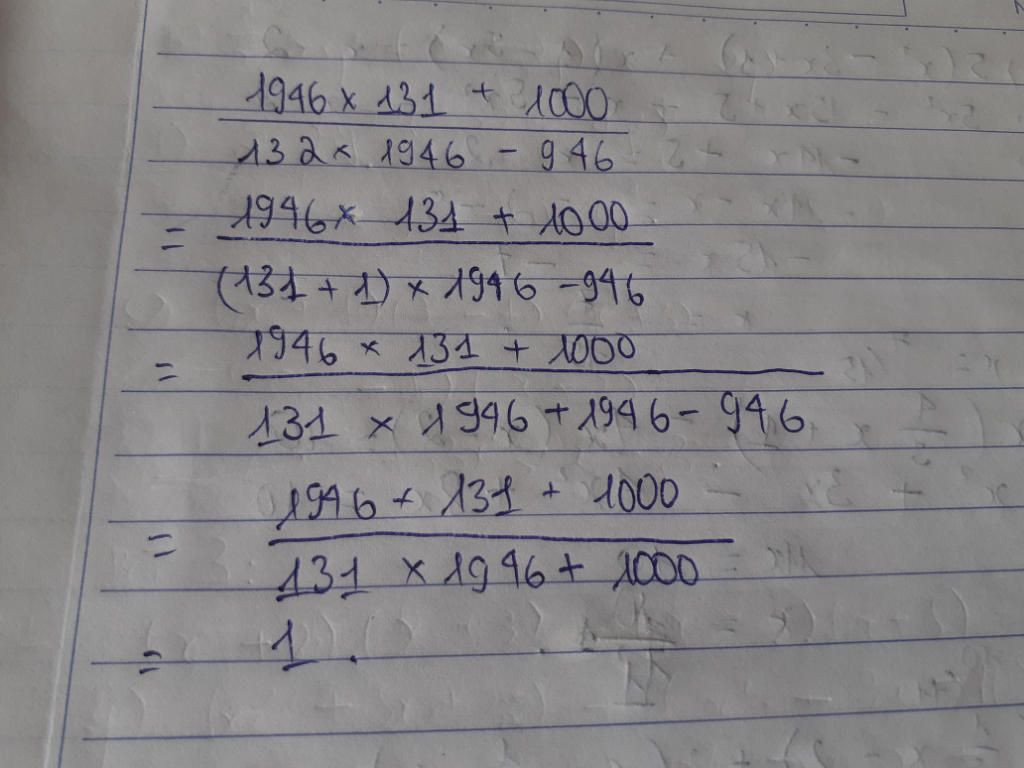 1946 × 131 + 1000
132 × 1946 - 946
= 1946 × 131 + 1000
(131 + 1) × 1946 - 946
= 1946 × 131 + 1000
131 × 1946 + 1946 - 946
= 1946 + 131 + 1000
131 × 1946 + 1000
= 1.